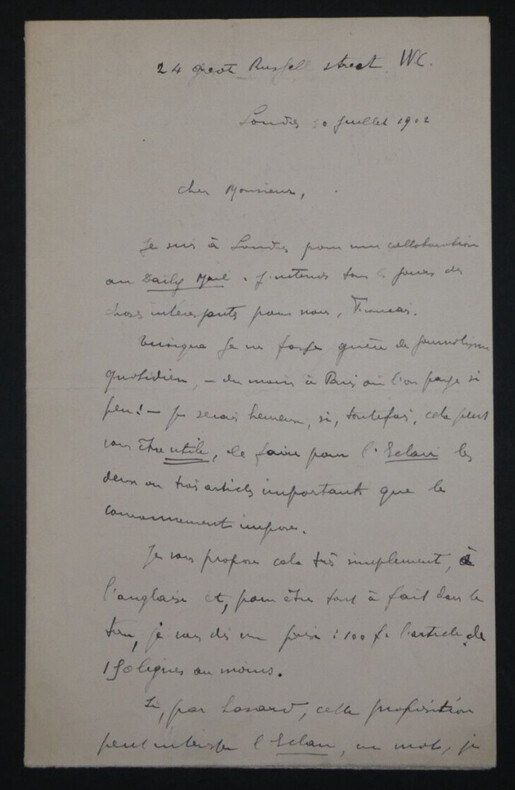 24 Great Russell street W.C.
Londres 30 Juillet 1902
Cher Monsieur,
Je suis à Londres pour une collaboration
au Daily Mail. J'entends tous les jours des
choses intéressants pour nous, Français.
Quoique je ne fasse guère de journalisme
quotidien, – du moins à Paris où l'on paye si
peu! – je serais heureux, si, toutefois, cela peut
vous être utile, de faire pour l'Eclair les
deux ou trois articles importants que le
couronnement impose.
Je vous propose cela très simplement, à
l'anglaise et, pour être tout à fait dans le
ton, je vous dis un prix : 100 f. l'article de
150 lignes au moins.
Si, par hasard, cette proposition
peut intéresser l'Eclair, un mot, je